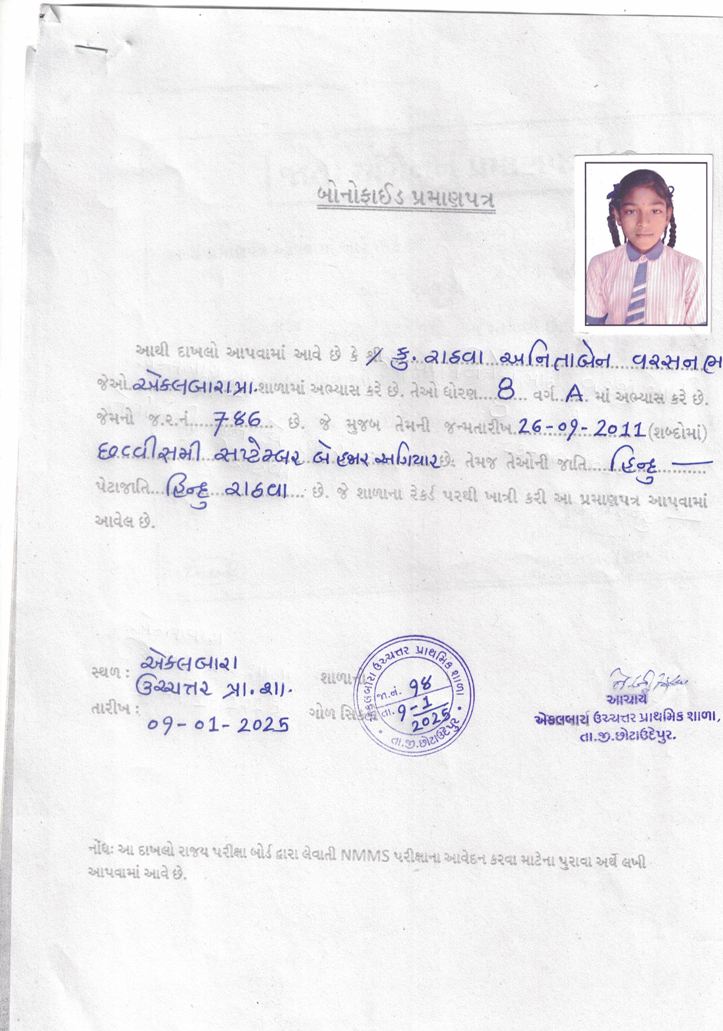 બોનોફાઈડ પ્રમાણપત્ર
આથી દાખલો આપવામાં આવે છે કે શ્રી કુ. રાઠવા અનિતાબેન વરસનભ
જેઓ એકલબારા પ્રા. શાળામાં અભ્યાસ કરે છે. તેઓ ધોરણ....8... વર્ગ..A.. માં અભ્યાસ કરે છે.
જેમનો જ.ર.નં....786.... છે. જે મુજબ તેમની જન્મતારીખ.26-09-2011(શબ્દોમાં)
છવ્વીસમી સપ્ટેમ્બર બે હજાર અગિયાર છે. તેમજ તેઓની જાતિ....હિન્દુ —
પેટાજાતિ...હિન્દુ રાઠવા.... છે. જે શાળાના રેકર્ડ પરથી ખાત્રી કરી આ પ્રમાણપત્ર આપવામાં
આવેલ છે.
સ્થળ : એકલબારા
ઉચ્ચત્તર પ્રા.શા.
તારીખ :
09-01-2025
શાળાનો
ગોળ સિક્કો
એકલબારા ઉચ્ચત્તર પ્રાથમિક શાળા
જા.નં. 98
તા. 9-1
2025
તા.જી.છોટાઉદેપુર
આચાર્ય
એકલબાર્ય ઉચ્ચત્તર પ્રાથમિક શાળા,
તા.જી.છોટાઉદેપુર.
નોંધઃ આ દાખલો રાજય પરીક્ષા બોર્ડ દ્વારા લેવાતી NMMS પરીક્ષાના આવેદન કરવા માટેના પુરાવા અર્થે લખી
આપવામાં આવે છે.